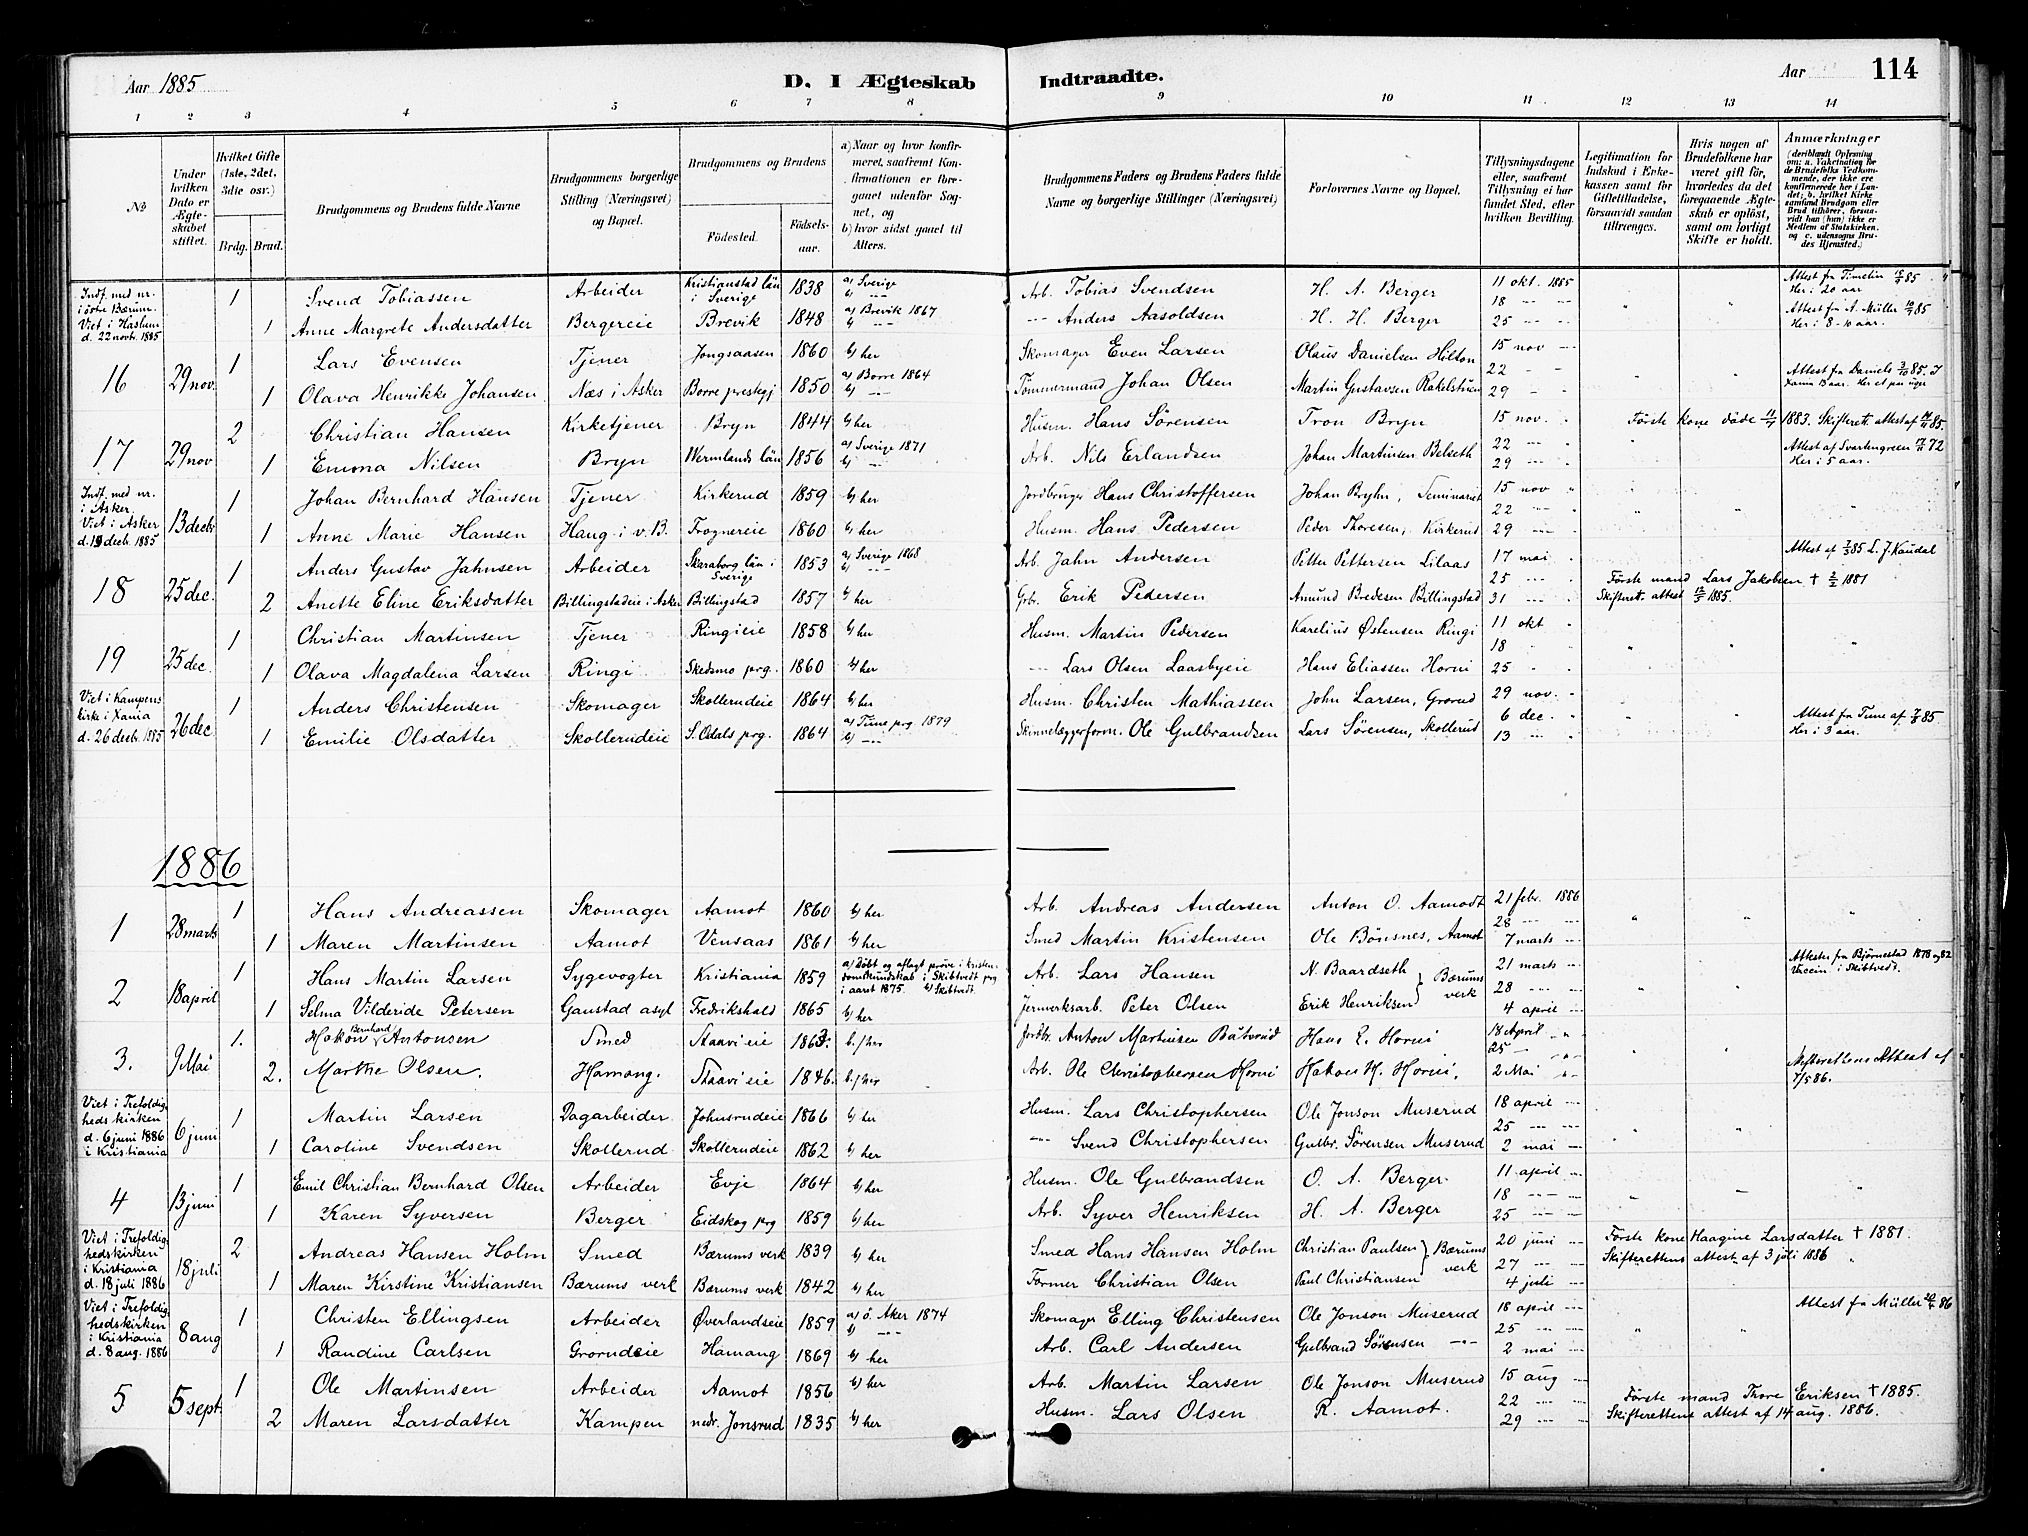 Aar 1885
D. I Ægteskab Indtraadte.
Aar
114
1 2 3 4 5 6 7 8 9 10 11 12 13 14
№
Under hvilken Dato er Ægteskabet stiftet.
Hvilket Gifte (1ste, 2det, 3die osv.)
Brdg. Brud.
Brudgommens og Brudens fulde Navne
Brudgommens borgerlige Stilling (Næringsvei) og Bopæl.
Brudgommens og Brudens
Fødested. Fødselsaar.
a) Naar og hvor konfirmeret, saafremt Konfirmationen er foregaaet udenfor Sognet, og
b) hvor sidst gaaet til Alters.
Brudgommens Faders og Brudens Faders fulde Navne og borgerlige Stillinger (Næringsvei)
Forlovernes Navne og Bopæl.
Tillysningsdagene eller, saafremt Tillysning ei har fundet Sted, efter hvilken Bevilling.
Legitimation for Indskud i Enkekassen samt for Giftetilladelse, forsaavidt saadan tiltrænges.
Hvis nogen af Brudefolkene har været gift før, hvorledes da det foregaaende Ægteskab er opløst, samt om lovligt Skifte er holdt.
Anmærkninger
(deriblandt Oplysning om: a. Vakcination for de Brudefolks Vedkommende, der ikke ere konfirmerede her i Landet; b. hvilket Kirkesamfund Brudgom eller Brud tilhører, forsaavidt han (hun) ikke er Medlem af Statskirken, og c. udensogns Brudes Hjemsted.)
Indf. med nr. i østre Bærum. Viet i Haslum d. 22 novb. 1885
1 Svend Tobiassen Arbeider Kristianstad län i Sverige 1838 a) Sverige b) -- Arb. Tobias Svendsen H. A. Berger 11 okt. 1885 18 Attest fra Timelin 85. Her i 20 aar
1 Anne Margrete Andersdatter Bergereie Brevik 1848 a) Brevik 1867 b) -- -- Anders Aasoldsen H. H. Berger 25 Attest fra A. Müller 85 Her i 8-10 aar.
16 29 nov. 1 Lars Evensen Tjener Jongsaasen 1860 b) her Skomager Even Larsen Olaus Danielsen Hilton 15 nov 22
1 Olava Henrikke Johansen Næs i Asker Borre prestegj 1850 a) Borre 1864 b) -- Tømmermand Johan Olsen Martin Gustavsen Rakelstuen 29 Attest fra Daniels 85. I Xania 13 aar. Her et par uger
17 29 nov 2 Christian Hansen Kirketjener Bryn 1844 b) her Husm. Hans Sørensen Tron Bryn 15 nov. 22 Første kone døde 11/4 1883. Skifterett. attest af 85.
1 Emma Nilsen Bryn Wermlands län 1856 a) Sverige 1871 b) -- Arb. Nils Erlandsen Johan Martinsen Belseth 29 Attest af Svartengreen 72 Her i 5 aar.
Indf. med nr. i Asker. Viet i Asker d. 13 decb. 1885
13 decb 1 Johan Bernhard Hansen Tjener Kirkerud 1859 b) her Jordbruger Hans Christoffersen Johan Bryhn, Seminarist 15 nov 22
1 Anne Marie Hansen Haug i v. B. Frognereie 1860 b) her Husm. Hans Pedersen Peder Thoresen, Kirkerud 29
18 25 dec. 1 Anders Gustav Jahnsen Arbeider Skaraborg län i Sverige 1853 a) Sverige 1868 b) -- Arb. Jahn Andersen Petter Pettersen Lilaas 17 mai 25 Attest af 7/5 85 L. J. Kaudal
2 Anette Eline Eriksdatter Billingstadeie i Asker Billingstad 1857 b) her Grb. Erik Pedersen Amund Bredesen Billingstad 31 Første mand Lars Jakobsen † 2/2 1881 Skifterett. attest 12/5 1885.
19 25 dec. 1 Christian Martinsen Tjener Ringieie 1858 b) her Husm. Martin Pedersen Karelius Østensen Ringi 11 okt 18
1 Olava Magdalena Larsen Ringi Skedsmo prg. 1860 b) her -- Lars Olsen Laasbyeie Hans Eliassen Horni 25
Viet i Kampens kirke i Xania d. 26 decb. 1885
26 dec 1 Anders Christensen Skomager Skollerudeie 1864 b) her Husm. Christen Mathiassen John Larsen, Grorud 29 nov. 6 dec.
1 Emilie Olsdatter Skollerudeie S. Odals prg. 1864 a) Tune prg. 1879 b) -- Skinnelæggerform. Ole Gulbrandsen Lars Sørensen, Skollerud 13 Attest fra Tune af 85. Her i 3 aar.
1886
1 28 marts 1 Hans Andreassen Skomager Aamot 1860 b) her Arb. Andreas Andersen Anton O. Aamodt 21 febr. 1886 28
1 Maren Martinsen Aamot Vensaas 1861 b) her Smed Martin Kristensen Ole Bönsnes, Aamot 7 marts
2 18 april 1 Hans Martin Larsen Sygevogter Kristiania 1859 a) Døbt og aflagt prøve i kristendomskundskab i Skibtvedt prg i aaret 1875. b) Skibtvedt. Arb. Lars Hansen N. Baardseth Bærums verk 21 marts 28 Attester fra Bjørnestad 1878 og 82 Vaccin. i Skibtvedt.
1 Selma Vilderide Petersen Gaustad asyl Fredrikshald 1865 b) her Jernverksarb. Peter Olsen Erik Henriksen 4 april
3. 9 Mai 1. Hakon Bernhard Antonsen Smed Staavieie 1863. b.) her Jordbr. Anton Martinsen Båtvrud Hans E. Horni 18 April 25
2. Marthe Olsen. Hamang. Staavieie 1846. b.) her Arb. Ole Christophersen Horni Hakon H. Horni, 2 Mai Skifterettens Attest af 7/5 86.
Viet i Trefoldighedskirken d. 6 juni 1886 i Kristiania
6 juni 1 Martin Larsen Dagarbeider Johnsrudeie 1866 b) her Husm. Lars Christophersen Ole Jonson Muserud 18 april 25
1 Caroline Svendsen Skollerud Skollerudeie 1862 b) her -- Svend Christophersen Gulbr. Sørensen Muserud 2 mai
4 13 juni 1 Emil Christian Bernhard Olsen Arbeider Evje 1864 b) her Husm. Ole Gulbrandsen O. A. Berger 11 april 18
1 Karen Syversen Berger Eidskog prg 1859 b) her Arb. Syver Henriksen H. A. Berger 25
Viet i Trefoldighedskirken i Kristiania d. 18 juli 1886
18 juli 2 Andreas Hansen Holm Smed Bærums verk 1839 b) her Smed Hans Hansen Holm Christian Paulsen Bærums verk 20 juni 27 Første kone Haagine Larsdatter † 1881. Skifterettens attest af 3 juli 1886
1 Maren Kirstine Kristiansen Bærums verk Bærums verk 1842 b) her Former Christian Olsen Paul Christiansen 4 juli
Viet i Trefoldighedskirken i Kristiania d. 8 aug. 1886
8 aug 1 Christen Ellingsen Arbeider Øverlandseie 1859 a) ö. Aker 1874 b) -- Skomager Elling Christensen Ole Jonson Muserud 18 april 25 Attest fra Müller 86
1 Randine Carlsen Grorudeie Hamang 1869 b) her Arb. Carl Andersen Gulbrand Sørensen -- 2 mai
5 5 sept. 1 Ole Martinsen Arbeider Aamot 1856 b) her Arb. Martin Larsen Ole Jonson Muserud 15 aug 22 Første mand Thore Eriksen † 1885.
2 Maren Larsdatter Kampen nedr. Jonsrud 1835 b) her Husm. Lars Olsen R. Aamot. 29 Skifterettens attest af 14 aug. 1886.